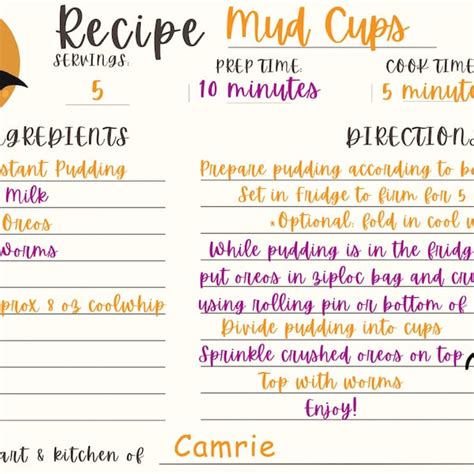 Recipe Mud Cups
SERVINGS: PREP TIME: COOK TIME
5 10 minutes 5 minutes
NGREDIENTS DIRECTION
stant Pudding
Milk
Oreos
Worms
prox 8 oz coolwhip
Prepare pudding according to bo
Set in Fridge to firm for 5
*Optional: fold in cool w
While pudding is in the fridg
put oreos in ziploc bag and cru
using rolling pin or bottom of
Divide pudding into cups
Sprinkle crushed oreos on top
Top with worms
Enjoy!
art & kitchen of Camrie